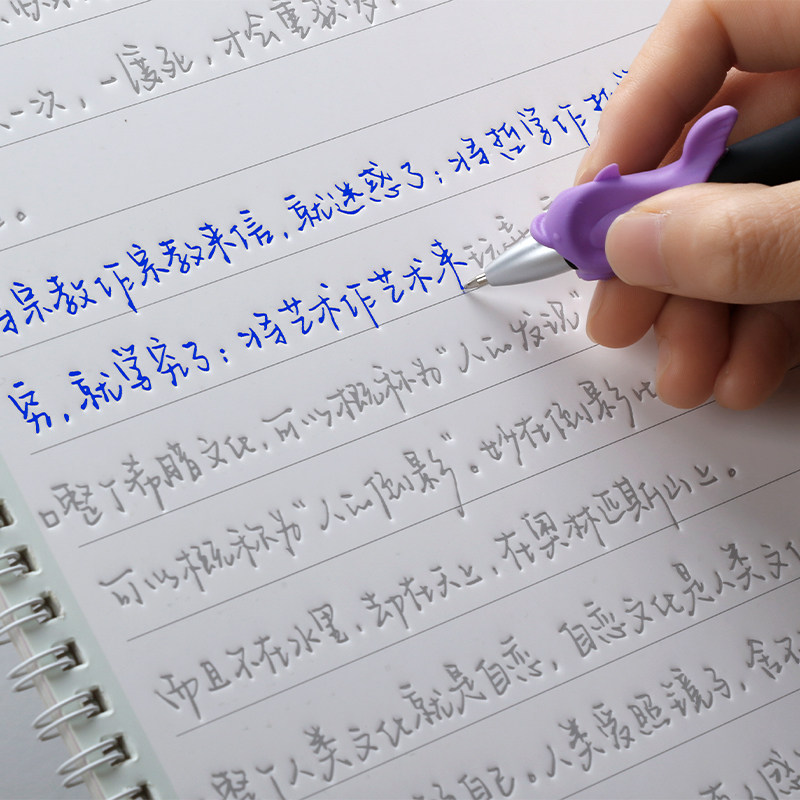 一次，一度死，才会重获
。
宗教作宗教来信，就迷惑了；将哲学作
穷，就学究了；将艺术作艺术来玩
整个希腊文化，可以概称为“人的发现”
可以概称为“人的倒影”。妙在倒影
而且不在水里，却在天上，在奥林匹斯山上。
整个人类文化就是自恋，自恋文化是人类文
自己。人类爱照镜子，舍不